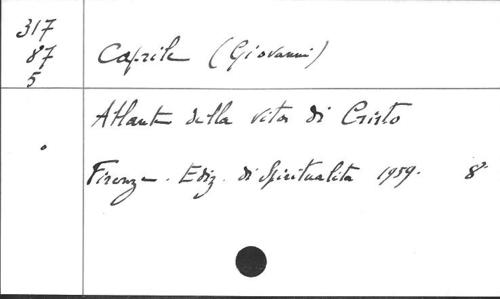 317
87
5
Caprile (Giovanni)
Atlante della vita di Cristo
Firenze. Ediz. di Spiritualita 1959. 8°